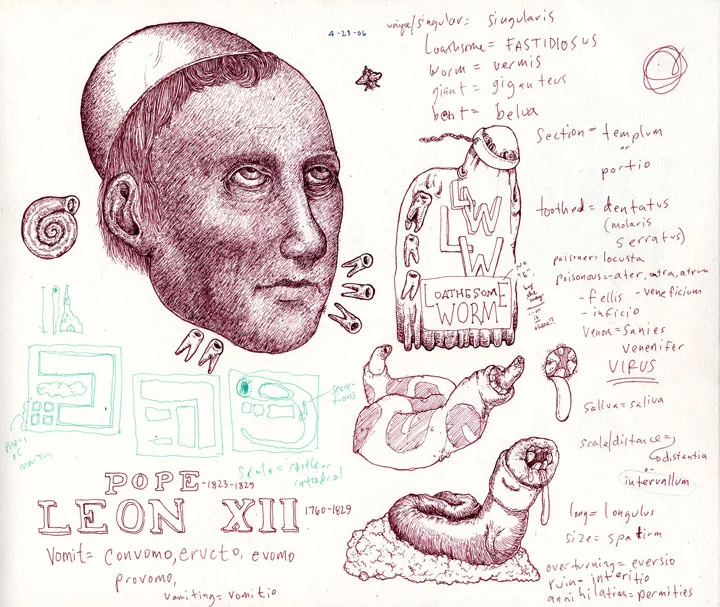 4-23-06
unique/singular = singularis
Loathsome = FASTIDIOSUS
worm = vermis
giant = giganteus
beast = belua
Section = templum
or
portio
toothed = dentatus
(molaris
serratus)
poisoner = locusta
poisonous = ater, atra, atrum
- fellis - veneficium
- inficio
Venom = Sanies
venenifer
VIRUS
saliva = saliva
scale/distance =
distantia
or
intervallum
long = longulus
size = spatium
overturning = eversio
ruin = interitio
annihilation = permities
LW
LW
LOATHESOME
WORM
secre-
tions
parts
of
mouth
scale = castle or
cathedral
POPE -1823-1829
LEON XII 1760-1829
Vomit = convomo, eructo, evomo
provomo,
vomiting = vomitio